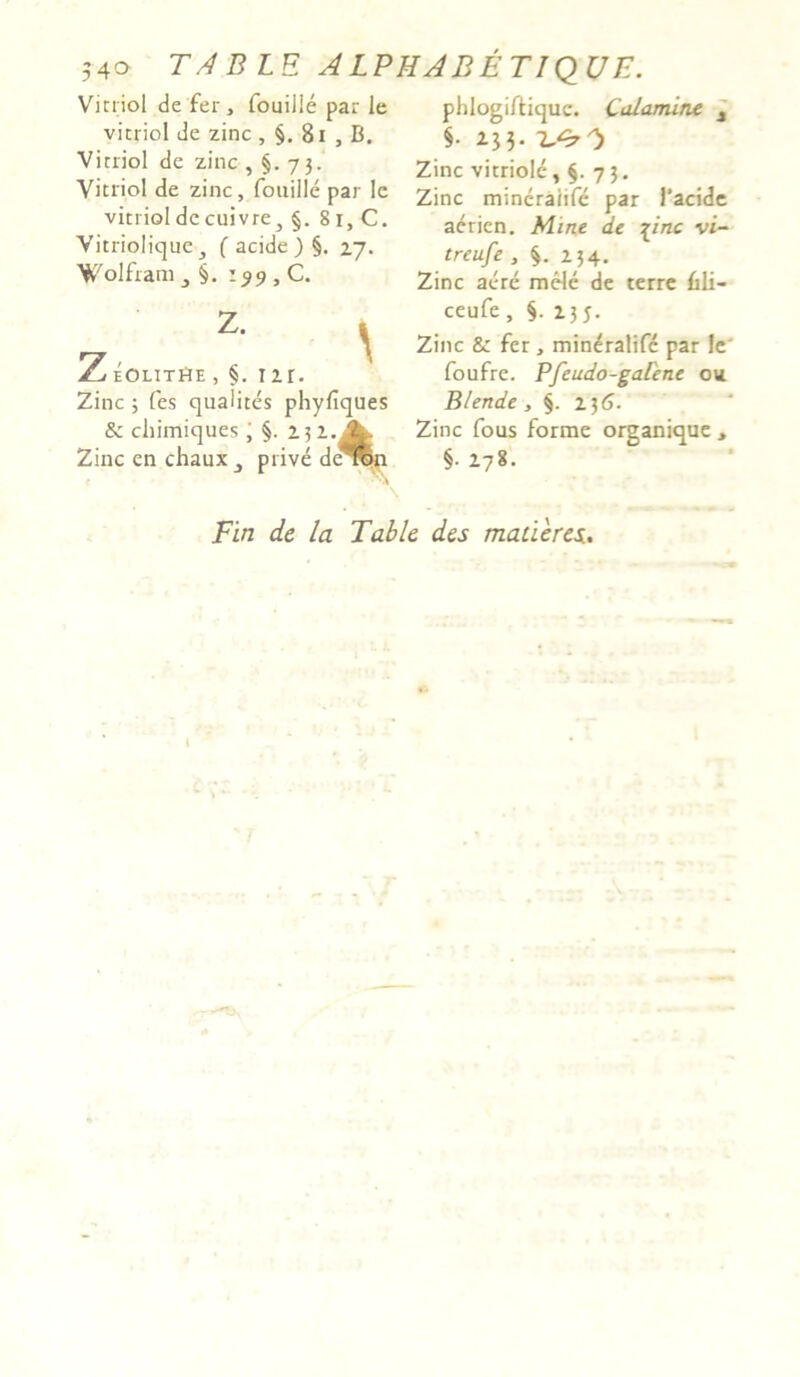 340 TABLE ALPHABÉTIQUE.
Vitriol de fer, ſouillé par le
vitriol de zinc, §. 81, B.
Vitriol de zinc, §. 73.
Vitriol de zinc, ſouillé par le
vitriol de cuivre, §. 81, C.
Vitriolique, (acide) §. 27.
Wolfram, §. 199, C.
Z.
ZÉOLITHE, §. 121.
Zinc; ſes qualités phyſiques
& chimiques, §. 232.
Zinc en chaux, privé de ſon
phlogiſtique. Calamine,
§. 233.
Zinc vitriolé, §. 73.
Zinc minéraliſé par l'acide
aérien. Mine de zinc vi-
treuſe, §. 234.
Zinc aéré mêlé de terre ſili-
ceuſe, §. 235.
Zinc & fer, minéraliſé par le
ſoufre. Pſeudo-galène ou
Blende, §. 236.
Zinc ſous forme organique,
§. 278.
Fin de la Table des matières.